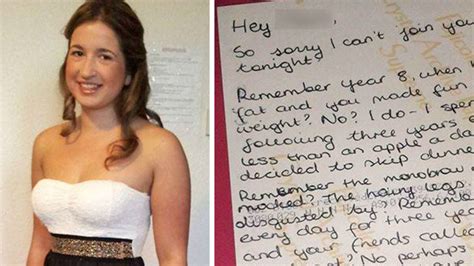 Hey
So sorry I can't join you
tonight.
Remember year 8, when
fat and you made fun
weight? No? I do - I spen
following three years
less than an apple a da
decided to skip dinne
Remember the monobrow
mocked? The hairy legs
disgusted by? Remembe
every day for three yea
and your friends called
No perhaps